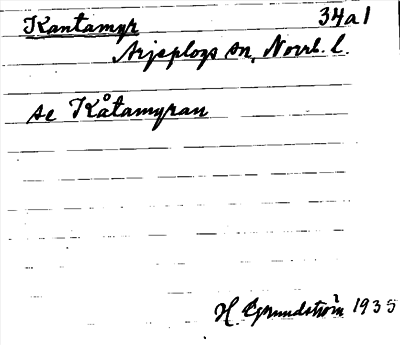 Kantamyr 34a1
Arjeplogs sn, Norrb. l.
se Kåtamyran
H. Grundström 1935